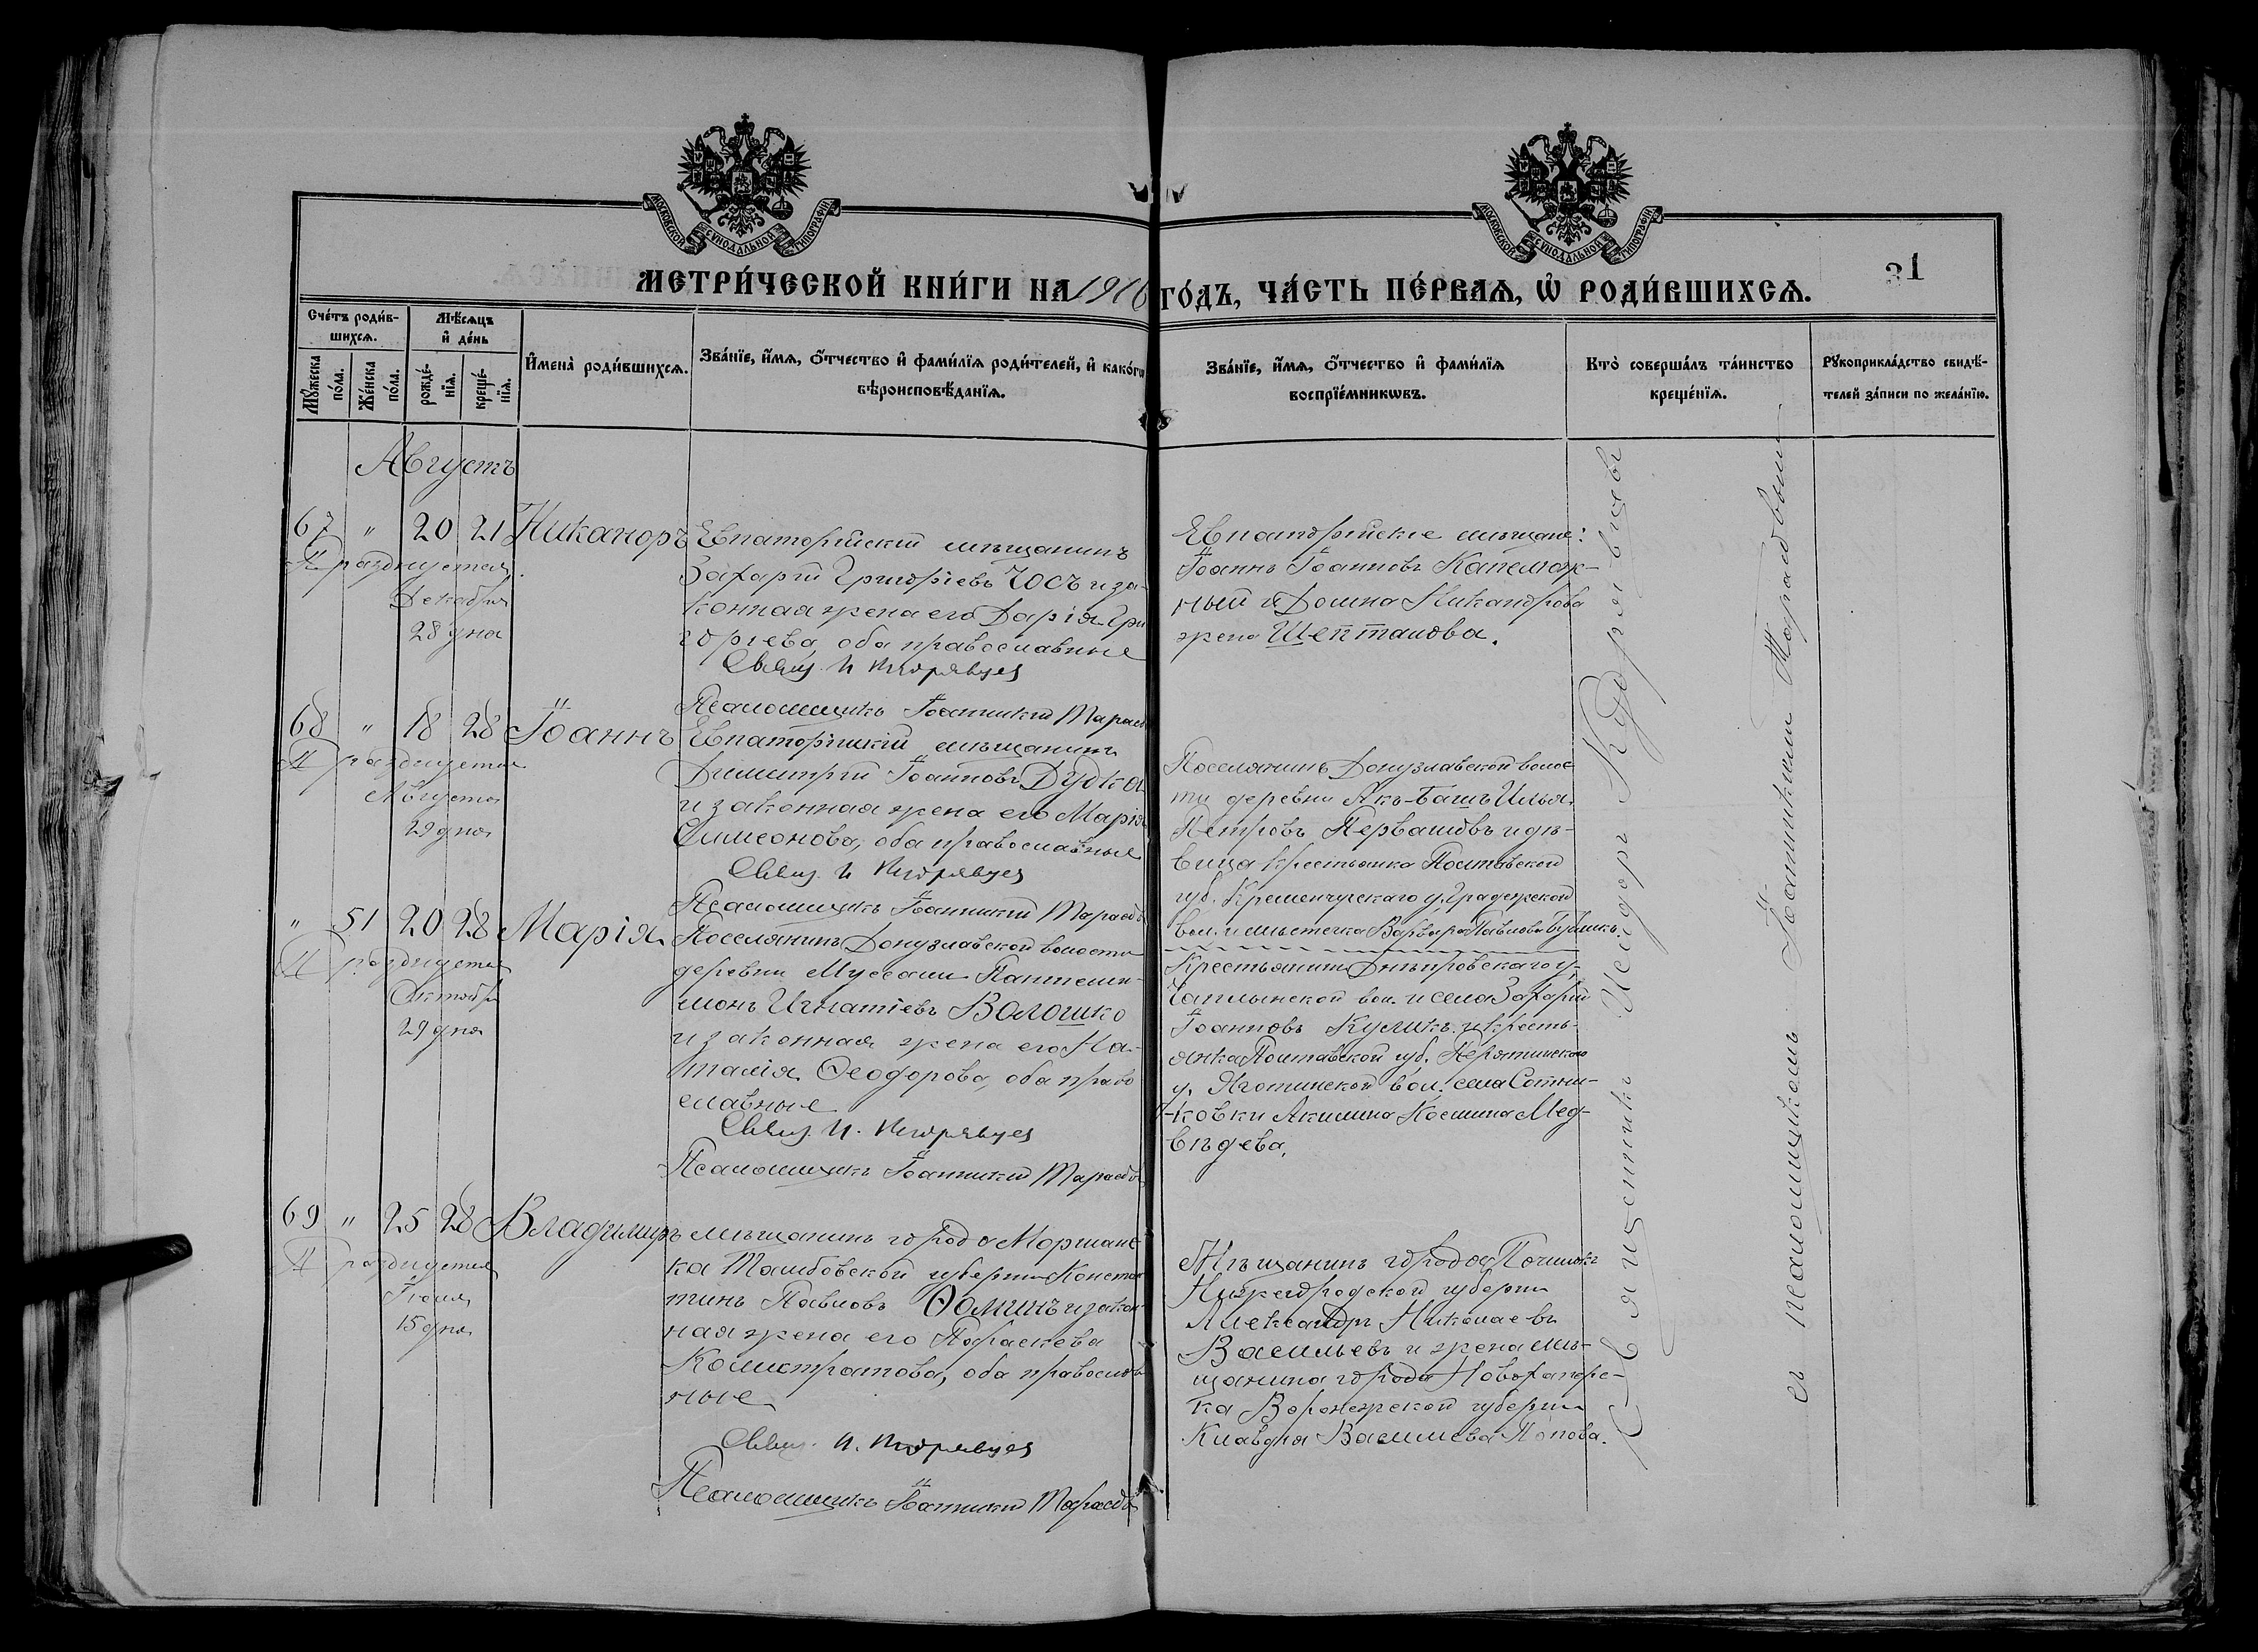 МОСКОВСКОЙ СѴНОДАЛЬНОЙ ТИПОГРАФІИ
МОСКОВСКОЙ СѴНОДАЛЬНОЙ ТИПОГРАФІИ
31
МЕТРИ́ЧЕСКОЙ КНИ́ГИ НА 1910 ГО́ДЪ, ЧА́СТЬ ПЕ́РВАЯ, Ѡ҆ РОДИ́ВШИХСЯ.
Сче́тъ роди́в-
шихся.
Мꙋ́жеска по́ла.
Же́нска по́ла.
Мѣ́сяцъ
и҆ де́нь
рожде́-
нїя.
креще́-
нїя.
И҆мена̀ роди́вшихся.
Зва́нїе, и҆́мя, ѻ҆́тчество и҆ фами́лїя роди́телей, и҆ како́гѡ
вѣроисповѣ́данїя.
Зва́нїе, и҆́мя, ѻ҆́тчество и҆ фами́лїя
воспрїе́мникѡвъ.
Кто̀ соверша́лъ та́инство
креще́нїя.
Рꙋкоприкла́дство свидѣ́-
телей за́писи по жела́нїю.
Августъ
67 " 20 21 Никаноръ
Празднуется
Декабря
28 дня
Евпаторійскій мѣщанинъ
Захарій Григоріевъ Чосъ и за-
конная жена его Дарія Гри
горьева, оба православные
Свящ. И Кудрявцев
Псаломщикъ Іоанникій Тарасов
Евпаторійскіе мѣщане:
Іоаннъ Іоанновъ Капелюж-
ный и Домна Никандрова
жена Шептакова.
68 " 18 28 Іоаннъ
Празднуется
Августа
29 дня
Евпаторійскій мѣщанинъ
Димитрій Іоанновъ Дудка
и законная жена его Марія
Симеонова, оба православные
Свящ. И Кудрявцев
Псаломщикъ Іоанникій Тарасов
Поселянинъ Донузлавской волос
ти деревни Акъ-Башъ Илья
Петровъ Первашовъ и дѣ-
вица крестьянка Полтавской
губ. Кременчугскаго у. Градежской
вол. и мѣстечка Варвара Павлова
" 51 20 28 Марія
Празднуется
Октября
29 дня
Поселянинъ Донузлавской волости
деревни Муссали Пантелей-
монъ Игнатіевъ Волошко
и законная жена его На-
талія Ѳеодорова, оба право
славные
Свящ. И. Кудрявцев
Псаломщикъ Іоанникій Тарасов
Крестьянинъ Днѣпровскаго у.
Чаплынской вол. и села Захарій
Іоанновъ Куликъ и кресть-
янка Полтавской губ. Пирятинскаго
у. Яготинской вол. села Сотни-
ковки Акилина Космина Мед-
вѣдева.
69 " 25 28 Владимиръ
Празднуется
Іюля
15 дня
мѣщанинъ города Моршанс
ка Тамбовской губерніи Констан
тинъ Павловъ Ѳоминъ и закон-
ная жена его Параскева
Калистратова, оба православ
ные
Свящ. И. Кудрявцев
Псаломщикъ Іоанникій Тарасов
Мѣщанинъ города Починокъ
Нижегородской губерніи
Александръ Николаевъ
Васильевъ и жена мѣ-
щанина города Новохаперс-
ка Воронежской губерніи
Клавдія Васильева Попова.
Священникъ Исидоръ Кудрявцевъ
съ псаломщикомъ Іоанникіемъ Тарасовымъ